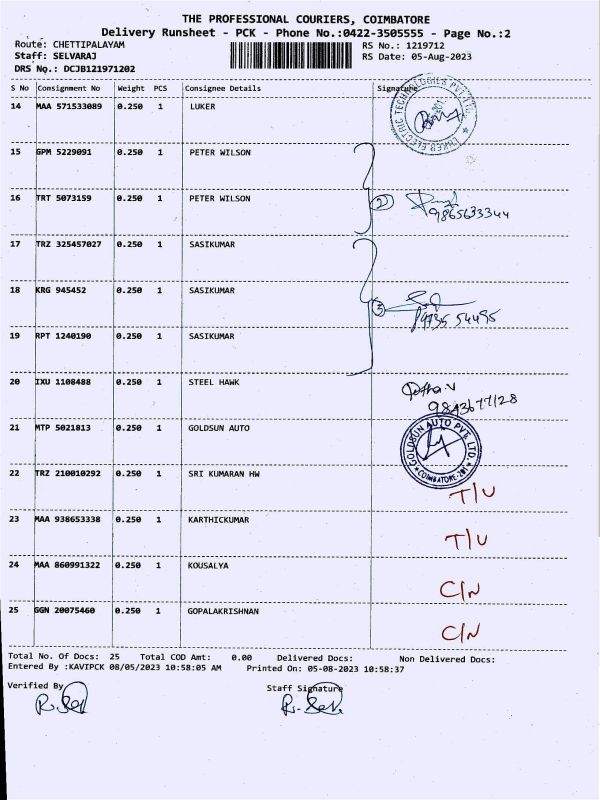 THE PROFESSIONAL COURIERS, COIMBATORE
Delivery Runsheet - PCK - Phone No.:0422-3505555 - Page No.:2
Route: CHETTIPALAYAM RS No.: 1219712
Staff: SELVARAJ RS Date: 05-Aug-2023
DRS No.: DCJB121971202
S No Consignment No Weight PCS Consignee Details Signature
14 MAA 571533089 0.250 1 LUKER
LUKER ELECTRIC TECHNOLOGIES PVT. LTD.
15 GPM 5229091 0.250 1 PETER WILSON
16 TRT 5073159 0.250 1 PETER WILSON
2
9865633344
17 TRZ 325457027 0.250 1 SASIKUMAR
18 KRG 945452 0.250 1 SASIKUMAR
3
19 RPT 1240190 0.250 1 SASIKUMAR
20 IXU 1108488 0.250 1 STEEL HAWK
9843677128
21 MTP 5021813 0.250 1 GOLDSUN AUTO
GOLDSUN AUTO PVT. LTD.
COIMBATORE-201
22 TRZ 210010292 0.250 1 SRI KUMARAN HW
T/U
23 MAA 938653338 0.250 1 KARTHICKUMAR
T/U
24 MAA 860991322 0.250 1 KOUSALYA
C/N
25 GGN 20075460 0.250 1 GOPALAKRISHNAN
C/N
Total No. Of Docs: 25 Total COD Amt: 0.00 Delivered Docs: Non Delivered Docs:
Entered By :KAVIPCK 08/05/2023 10:58:05 AM Printed On: 05-08-2023 10:58:37
Verified By Staff Signature